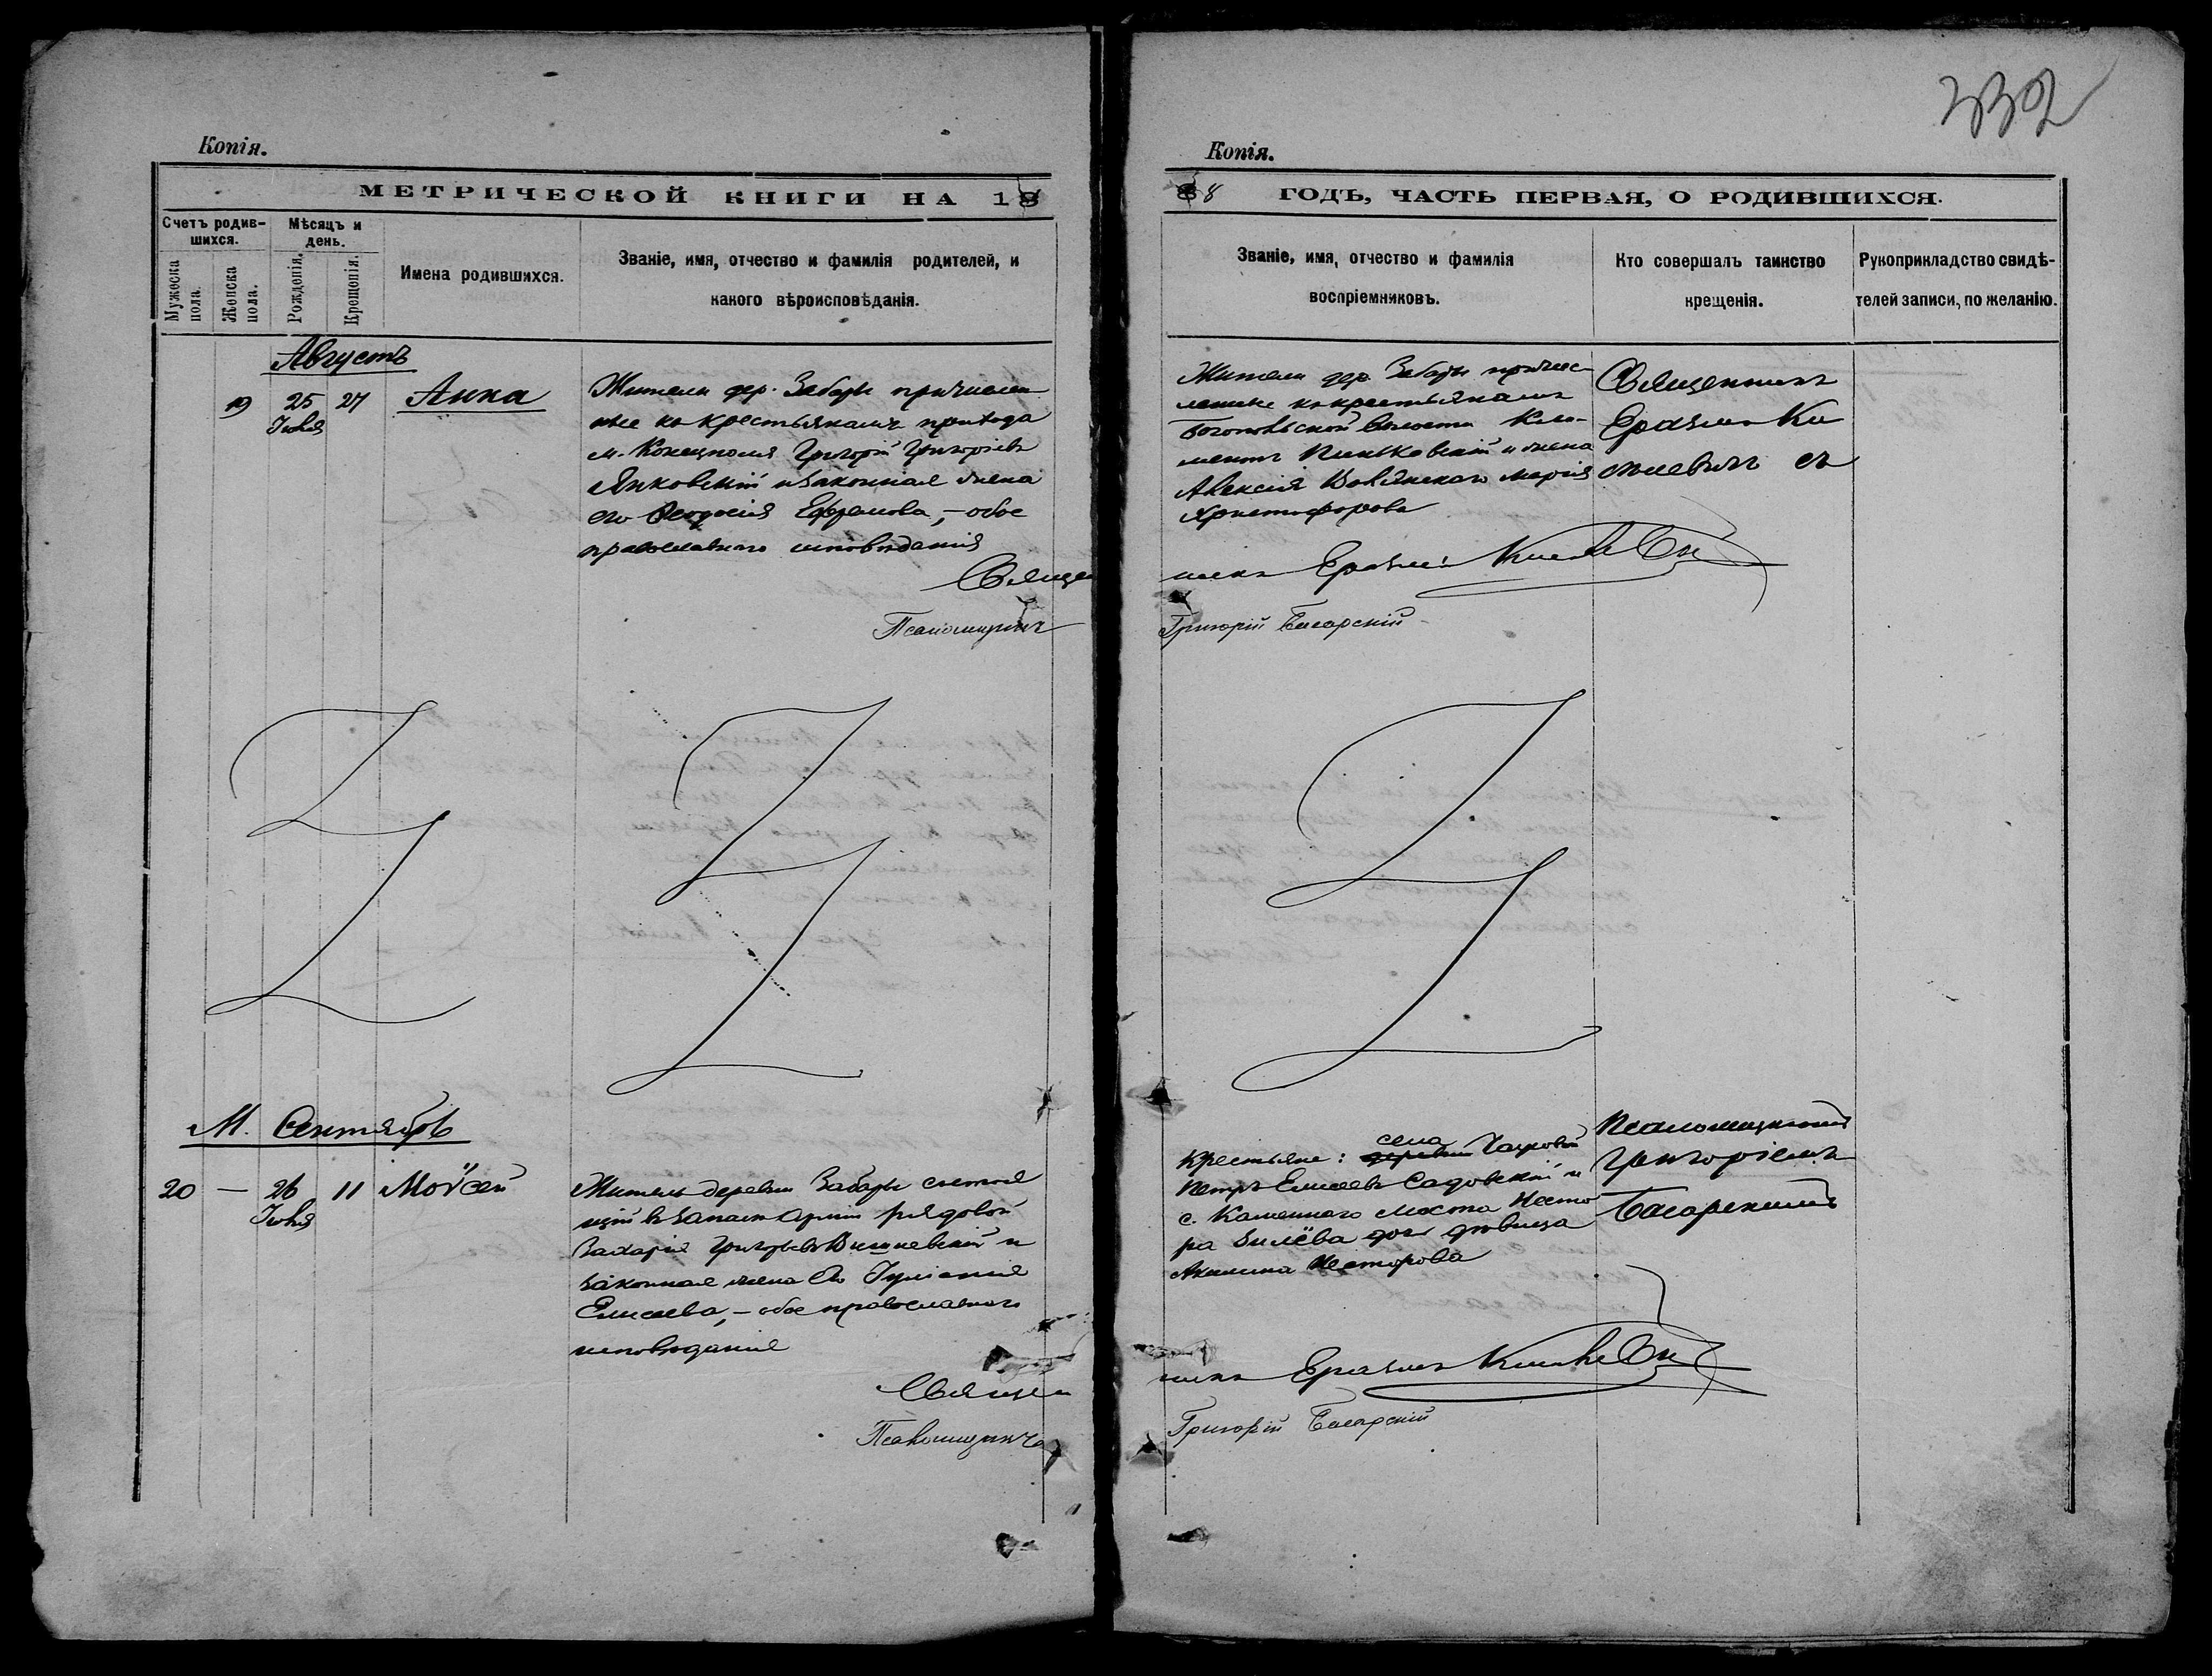 332
Копія.
МЕТРИЧЕСКОЙ КНИГИ НА 18
Счетъ родив-
шихся.
Мѣсяцъ и
день.
Мужеска
пола.
Женска
пола.
Рожденія.
Крещенія.
Имена родившихся.
Званіе, имя, отчество и фамилія родителей, и
какого вѣроисповѣданія.
Августъ
19 25 27 Анна
Іюля
Жители дер. Забары причислен
ные къ крестьянамъ прихода
м. Конецполя Григорій Григоріевъ
Янковскій и законная жена
его Ѳеодосія Ефремова, – обое
православнаго исповѣданія
Священ
Псаломщикъ
М. Сентябрь
20 — 26 11 Мойсей
Іюля
Житель деревни Забары состоя
щій въ запасѣ арміи рядовой
Захарія Григорьевъ Вишневскій и
законная жена его Іуліанія
Елисеева, – обое православнаго
исповѣданія
Священ
Псаломщикъ
Копія.
8 ГОДЪ, ЧАСТЬ ПЕРВАЯ, О РОДИВШИХСЯ.
Званіе, имя, отчество и фамилія
воспріемниковъ.
Кто совершалъ таинство
крещенія.
Рукоприкладство свидѣ-
телей записи, по желанію.
Жители дер. Забары причис-
ленные къ крестьянамъ
Богопольской волости Кли-
ментъ и жена
Алексія Марія
Христофорова
Священникъ
Еразмъ Ки
съ
никъ Еразмъ
Григорій Писарскій
Крестьяне: села
Петръ Елисеевъ Садовскій и
с. Каменнаго Моста Несто
ра дочь дѣвица
Акилина Несторова
Псаломщикомъ
Григоріемъ
Писарскимъ
никъ Еразмъ
Григорій Писарскій